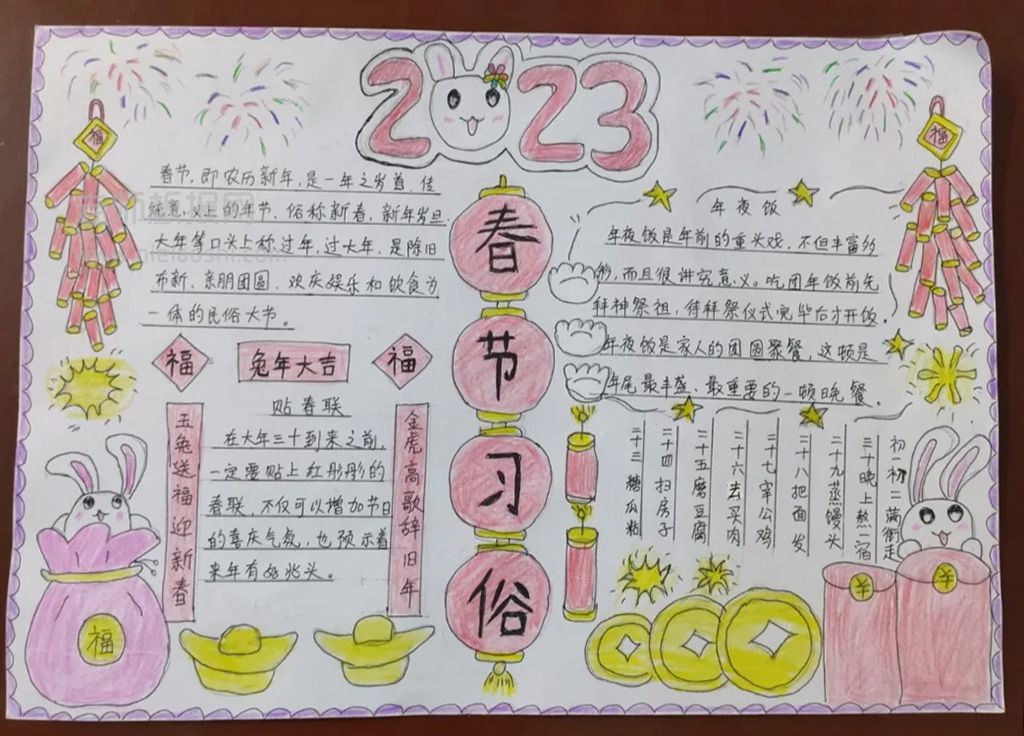 2023
福
福
春节,即农历新年,是一年之岁首、传
统意义上的年节。俗称新春,新年岁旦、
大年等口头上称过年,过大年,是除旧
布新、亲朋团圆、欢庆娱乐和饮食为
一体的民俗大节。
春节习俗
年夜饭
年夜饭是年前的重头戏,不但丰富多
彩,而且很讲究意义。吃团年饭前先
拜神祭祖,待拜祭仪式完毕后才开饭。
年夜饭是家人的团圆聚餐,这顿是
年尾最丰盛、最重要的一顿晚餐。
福
兔年大吉
福
玉兔送福迎新春
贴春联
在大年三十到来之前,
一定要贴上红彤彤的
春联,不仅可以增加节日
的喜庆气氛,也预示着
来年有好兆头。
金虎高歌辞旧年
二十三糖瓜粘
二十四扫房子
二十五磨豆腐
二十六去买肉
二十七宰公鸡
二十八把面发
二十九蒸馒头
三十晚上熬一宿
初一初二满街走
福
羊
羊